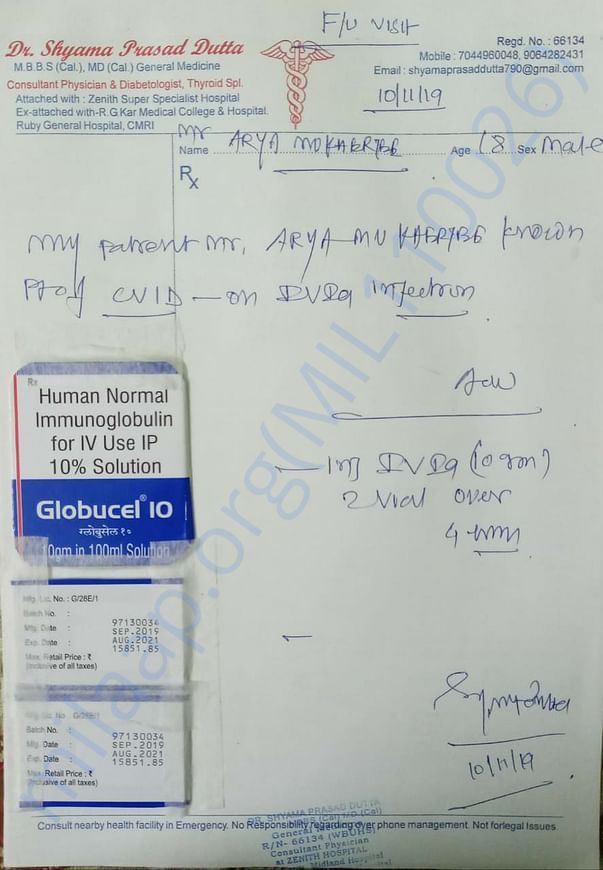 F/U VISIT
Dr. Shyama Prasad Dutta
M.B.B.S (Cal.), MD (Cal.) General Medicine
Consultant Physician & Diabetologist, Thyroid Spl.
Attached with : Zenith Super Specialist Hospital
Ex-attached with-R.G Kar Medical College & Hospital.
Ruby General Hospital, CMRI
Regd. No. : 66134
Mobile : 7044960048, 9064282431
Email : shyamaprasaddutta790@gmail.com
10/11/19
Name Mr ARYA MUKHERJEE Age 18 Sex Male
Rx
My patient Mr. ARYA MUKHERJEE known
Pt of CVID — on IVIg infection
Adv
— Inj IVIg (10 gm)
2 vial over
4
Rx
Human Normal
Immunoglobulin
for IV Use IP
10% Solution
Globucel® 10
ग्लोबुसेल १०
10gm in 100ml Solution
Mfg. Lic. No. : G/28E/1
Batch No. : 97130034
Mfg. Date : SEP.2019
Exp. Date : AUG.2021
Max. Retail Price : ₹ 15851.85
(Inclusive of all taxes)
Mfg. Lic. No. G/28E/1
Batch No. : 97130034
Mfg. Date : SEP.2019
Exp. Date : AUG.2021
Max. Retail Price : ₹ 15851.85
(Inclusive of all taxes)
10/11/19
Consult nearby health facility in Emergency. No Responsibility regarding over phone management. Not forlegal Issues.
DR. SHYAMA PRASAD DUTTA
MBBS (Cal) MD (Cal)
General Medicine
R/N- 66134 (WBUHS)
Consultant Physician
at ZENITH HOSPITAL
Midland Hospital
milaap.org(MIL1110026)